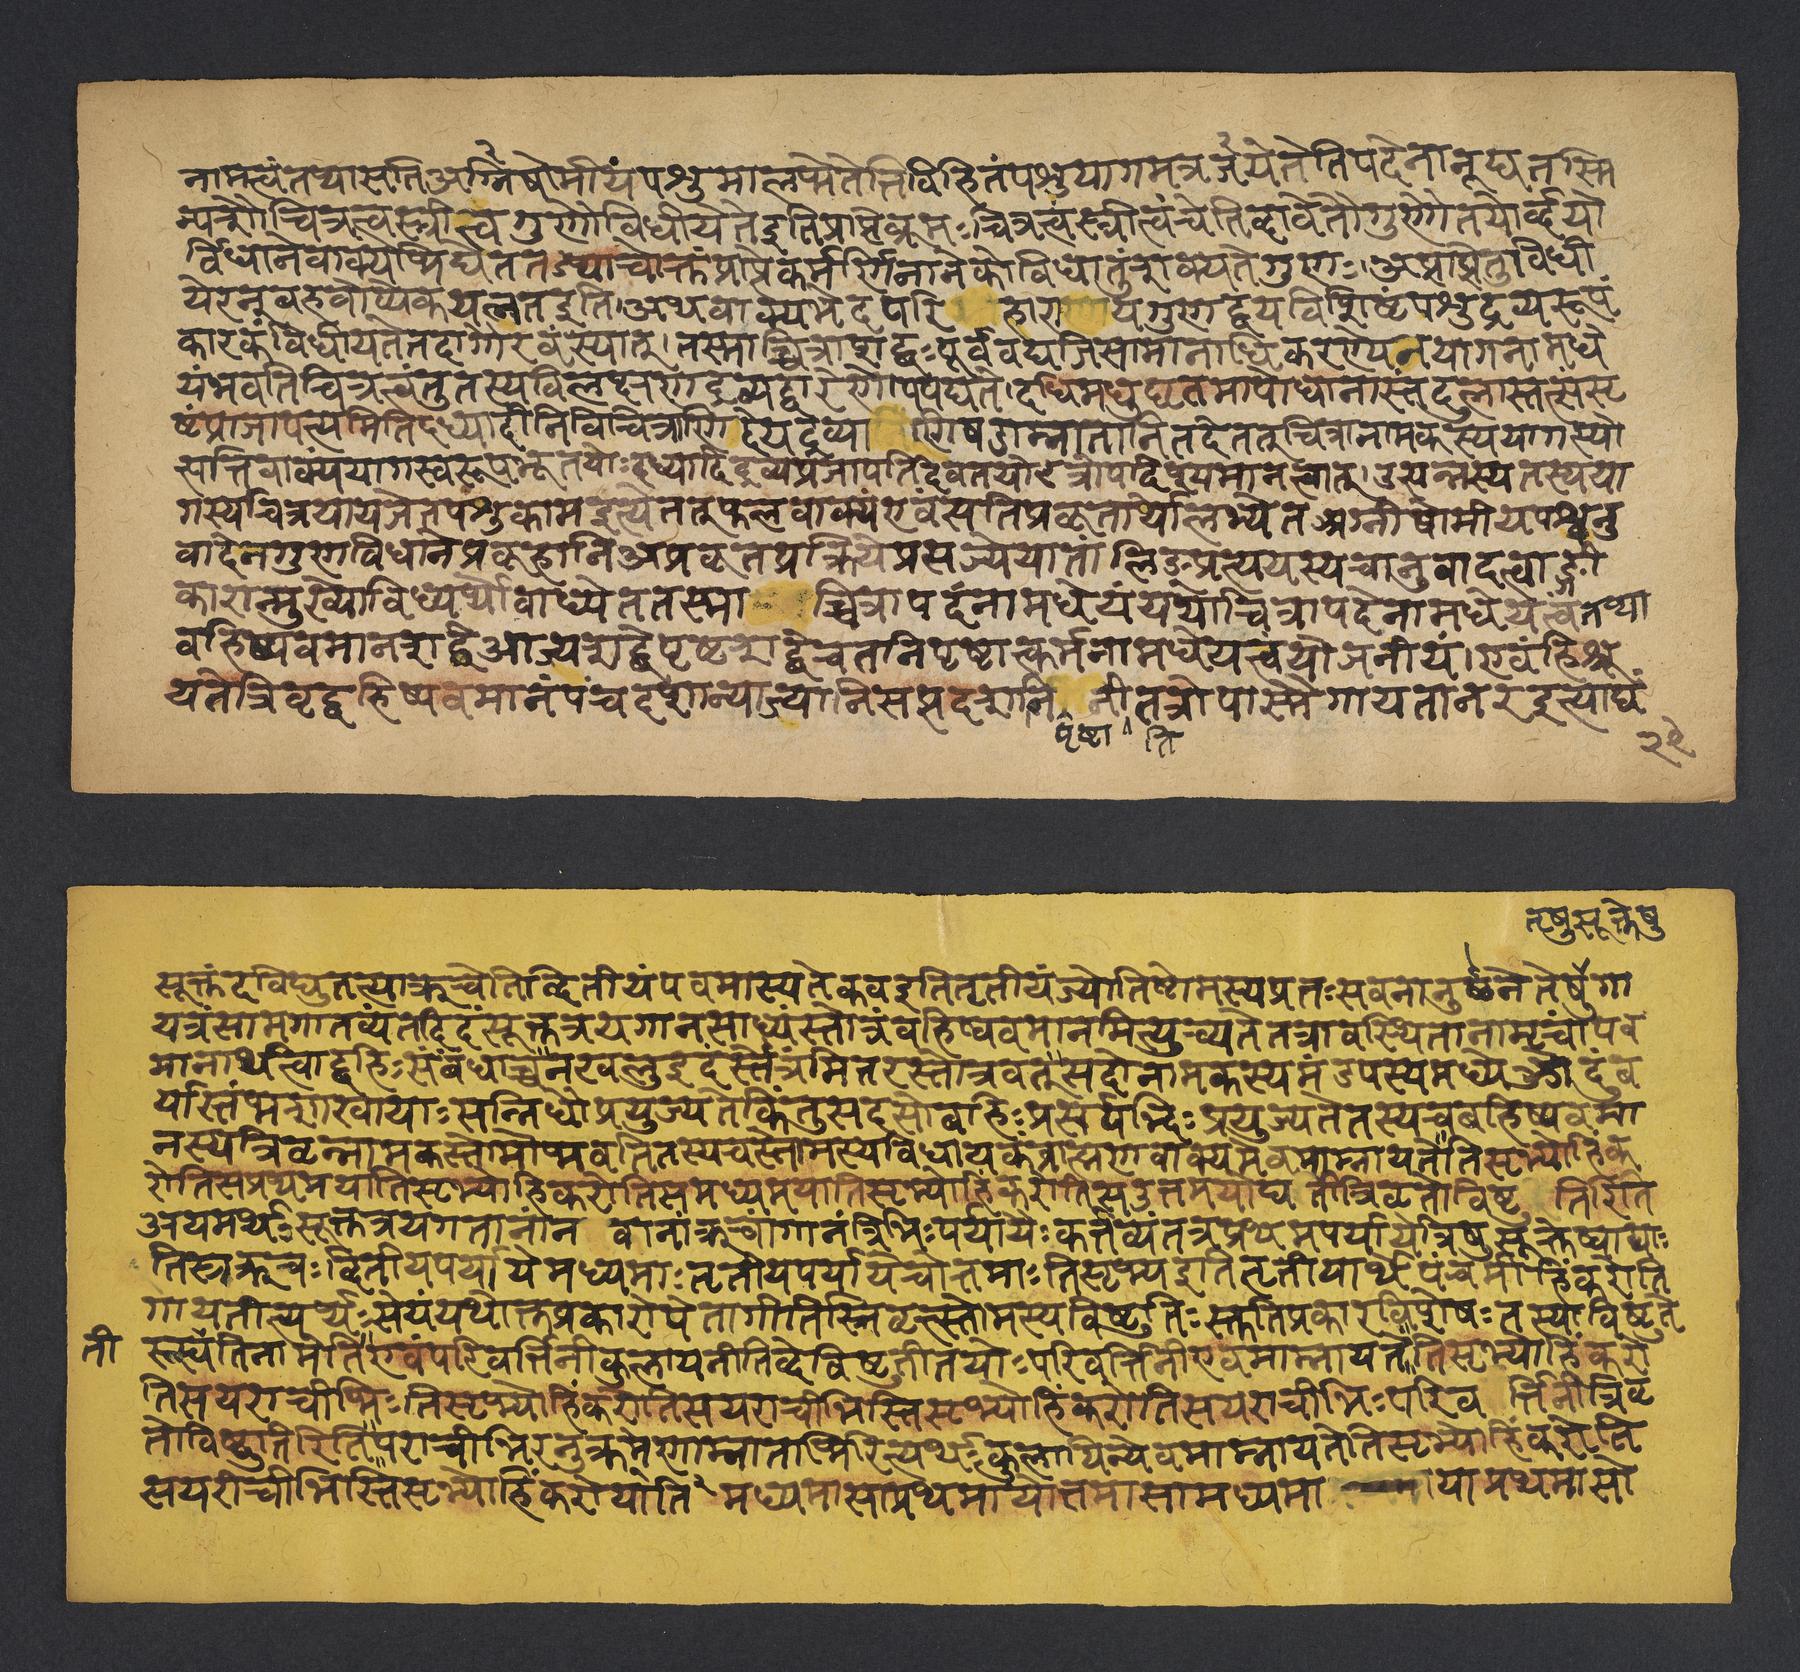 नामत्वं तथा सति अग्निषोमीयं पशुमालभेतेति विहितं पशुयागमत्र यजेतेति पदेनानूद्य तस्मि
न्पशौ चित्रत्वस्त्रीत्वे गुणो विधीयते इति प्राप्ते ब्रूमः चित्रत्वं स्त्रीत्वं चेति द्वावेतौ गुणौ तयोर्द्वयो
र्विधाने वाक्यं भिद्येत तञ्चोक्तं प्राप्ते कर्मणि नानेको विधातुं शक्यते गुणः । अप्राप्ते तु विधी
यंते बहवोप्येकयत्नत इति । अथ वाक्यभेदपरि हाराय गुणद्वयविशिष्टं पशुद्रव्यरूपं
कारकं विधीयते तदा गौरवं स्यात् । तस्माच्चित्राशब्दः पूर्ववद्यजिसामानाधिकरण्येन यागनामधे
यं भवति चित्रत्वं तु तस्य विलक्षणद्रव्यद्वारेणोपपद्यते । दधि मधु घृतमापो धानास्तंदुलास्तत्संसृ
ष्टं प्राजापत्यमिति दध्यादीनि विचित्राणि देयद्रव्या णि षडाम्नातानि तदेतत् चित्रानामकस्य यागस्यो
त्पत्तिवाक्यं यागस्वरूप भूतयोः दध्यादिद्रव्यप्रजापतिदेवतयोरत्रोपदिश्यमानत्वात् । उत्पन्नस्य तस्य या
गस्य चित्रया यजेत पशुकाम इत्येतत् फलवाक्यं एवं सति प्रकृतार्थो लभ्येत अग्नीषोमीयपश्वनु
वादेन गुणविधाने प्रकृतहानिअप्रकृतप्रक्रिये प्रसज्येयातां लिङ्प्रत्ययस्य चानुवादत्वाङ्गी
कारान्मुख्यो विध्यर्थो बाध्येत तस्मा च्चित्रापदं नामधेयं यथा चित्रापदे नामधेयत्वं तथा
बहिष्पवमानशब्दे आज्यशब्दे पृष्टशब्दे च तनि पृष्टात्कर्मनामधेयत्वं योजनीयं । एवं हि श्रू
यते त्रिवृद्बहिष्पवमानं पंचदशान्याज्यानि सप्तदशानि नी तत्रोपास्मै गायता नर इत्याद्यं
पृष्टा नि
२१
तृषुसूक्तेषु
सूक्तं दविद्युतत्या ऋचेति द्वितीयं पवमास्य ते कव इति तृतीयं ज्योतिष्टोमस्य प्रातःसवनानुष्ठाने तेषु गा
यत्रं साम गातव्यं तदिदं सूक्तत्रयगानसाध्यं स्तोत्रं बहिष्पवमानमित्युच्यते तत्रावस्थितानामृचां पव
मानार्थत्वाद्बहिः संबंधाच्च न खलु इदं स्तोत्रमितरस्तोत्रवत् सदोनामकस्य मंडपस्य मध्ये औदुंब
र्यास्तंभशाखायाः सन्निधौ प्रयुज्यते किंतु सदसो बहिः प्रसर्पद्भिः प्रयुज्यते तस्य च बहिष्पवमा
नस्य त्रिवृन्नामक स्तोमो भवति तस्य च स्तोमस्य विधायकं ब्राह्मणवाक्यमेवमाम्नायते तिसृभ्यो हिंक
रोति स प्रथमया तिसृभ्यो हिंकरोति स मध्यमया तिसृभ्यो हिंकरोति स उत्तमया द्य तीत्रिवृतो विष्टु तिरिति
अयमर्थः सूक्तत्रयगतानां न वानां ऋचां गानं त्रिभिः पर्यायैः कर्तव्यं तत्र प्रथमपर्याये त्रिषु सूक्तेष्वाद्याः
तिस्र ऋचः द्वितीयपर्याये मध्यमाः तृतीयपर्याये चोत्तमाः तिसृभ्य इति तृतीयार्थे पंचमी हिंकरोति
गायतीत्यर्थः सेयं यथोक्तप्रकारोपेता गीतिस्त्रिवृत्स्तोमस्य विष्टुतिः स्तुतिप्रकारविशेषः तस्या विष्टुते
नी
रुद्यतीनामेति एवं परिवर्त्तिनी कुलायनीति द्वे विष्टुती तयोः परिवर्त्तिनी एवमाम्नायते तिसृभ्यो हिंकरो
ति स पराचीभिः तिसृभ्यो हिंकरोति स पराचीभिस्तिसृभ्यो हिंकरोति स पराचीभिः परिव र्त्तिनी त्रिवृ
तो विष्टुतिरिति पराचीभिरनुक्रमेणाम्नाताभिरित्यर्थः कुलायिन्येवमाम्नायते तिसृभ्यो हिंकरोति
स पराचीभिस्तिसृभ्यो हिंकरोयोति मध्यमा सा प्रथमा योत्तमा सा मध्यमा या प्रथमा सो